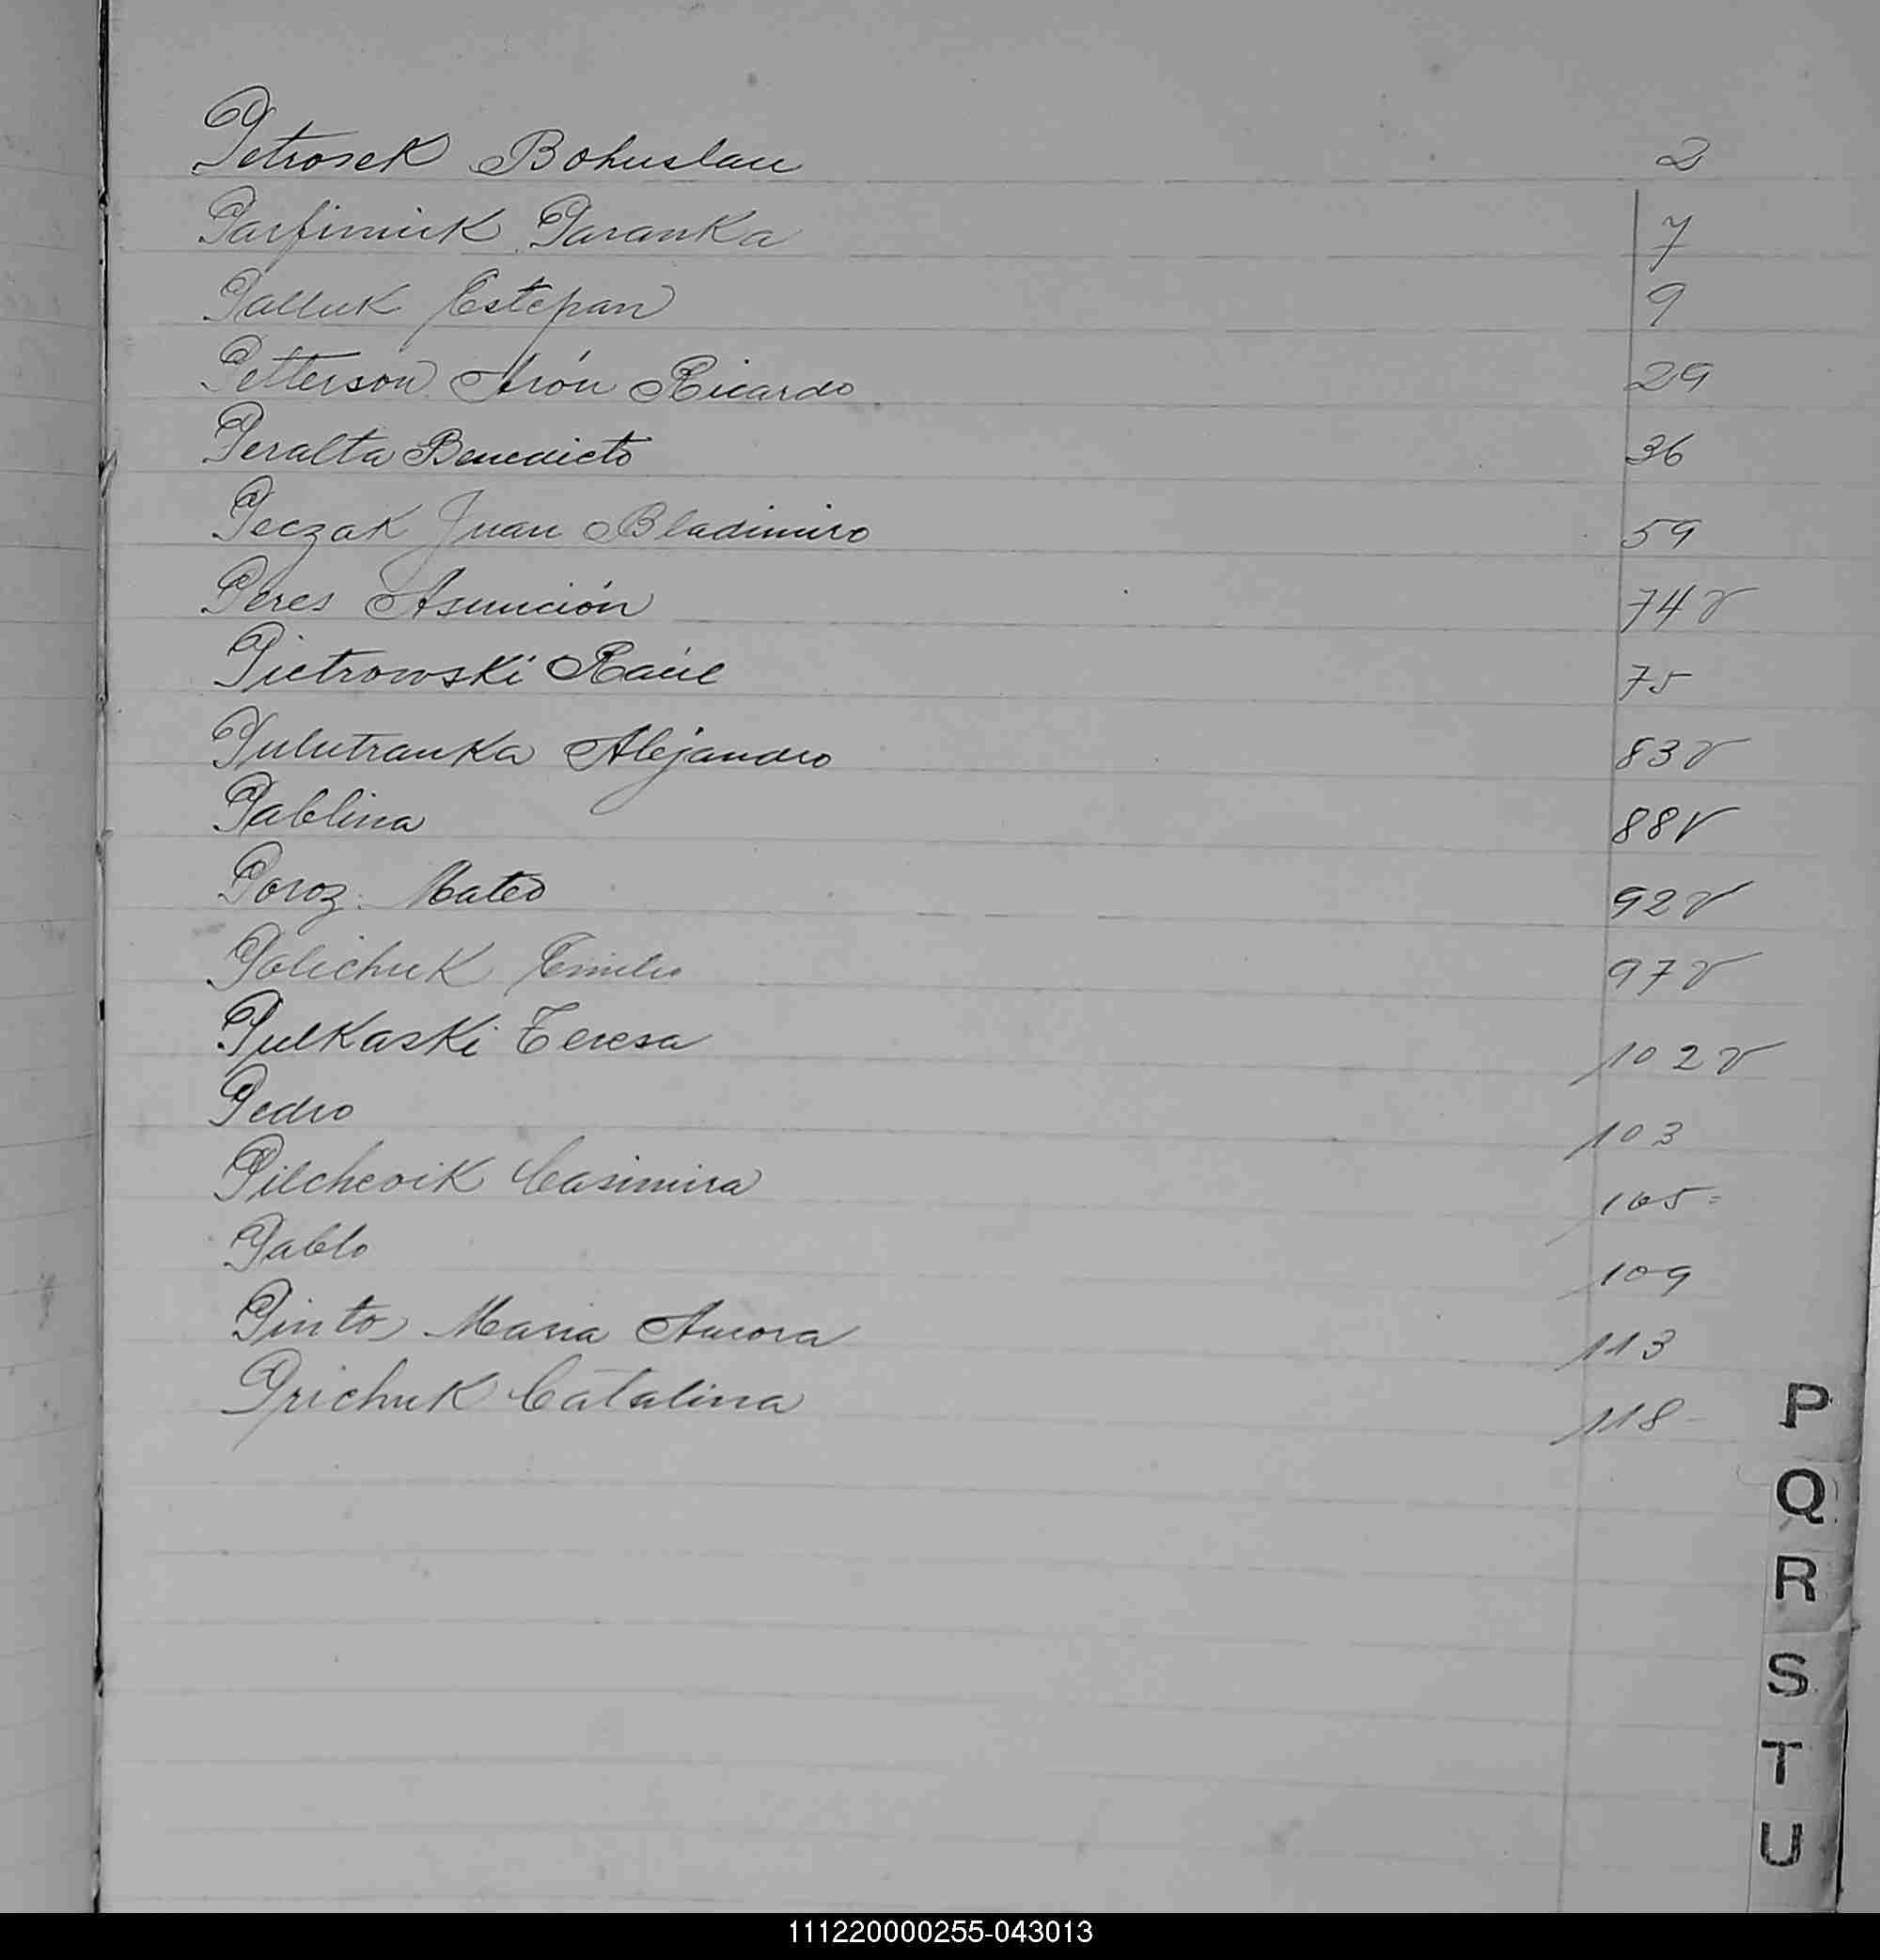 Petrosek Bohuslau 2
Parfimiuk Paranka 7
Palluk Estepan 9
Petterson Arón Ricardo 29
Peralta Benedicto 36
Peczak Juan Bladimiro 59
Peres Asunción 74 v
Pietrowski Raúl 75
Pulutranka Alejandro 83 v
Pablina 88 v
Poroz Mateo 92 v
Polichuk Emilio 97 v
Pulkaski Teresa 102 v
Pedro 103
Pilchevik Casimira 105=
Pablo 109
Pinto Maria Aurora 113
Prichuk Catalina 118-
P
Q
R
S
T
U
111220000255-043013